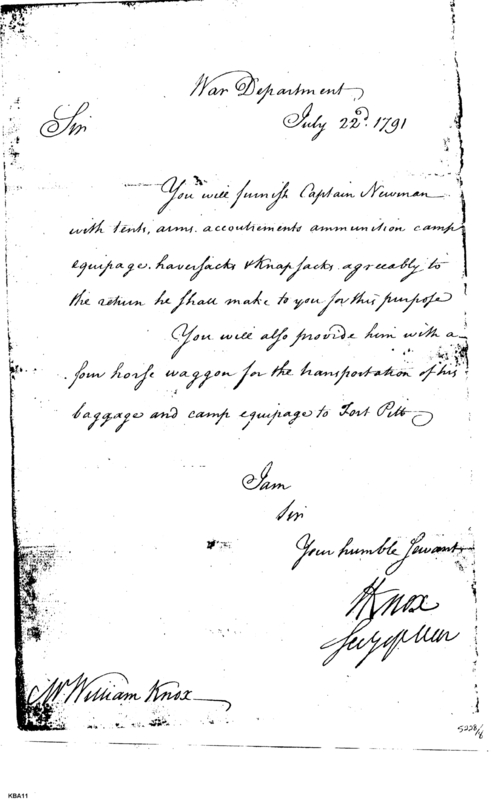 War Department
July 22d. 1791
Sir
You will furnish Captain Newman
with tents, arms. accoutrements ammunition camp
equipage. haversacks & Knapsacks agreeably to
the return he shall make to you for this purpose
You will also provide him with a
four horse waggon for the transportation of his
baggage and camp equipage to Fort Pitt
I am
Sir
Your humble Servant
HKnox
Secy of War
Mr William Knox
5228/6
KBA11